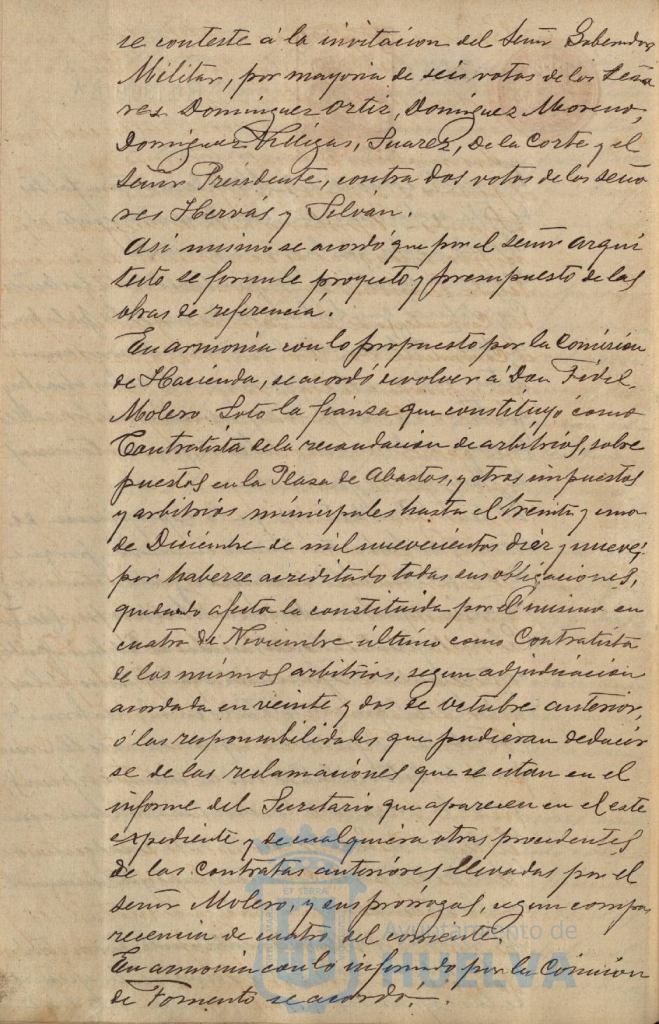 se conteste á la invitacion del Señor Gobernador
Militar, por mayoria de seis votos de los Seño
res Dominguez Ortiz, Dominguez Moreno,
Dominguez Villegas, Suarez, De la Corte y el
Señor Presidente, contra dos votos de los seño
res Hervás y Silván.
Asi mismo se acordó que por el señor arqui
tecto se formule proyecto y presupuesto de las
obras de referencia.
En armonia con lo propuesto por la Comision
de Hacienda, se acordó devolver á Don Fidel
Molero Soto la fianza que constituyó como
Contratista de la recaudacion de arbitrios, sobre
puestos en la Plaza de Abastos, y otros impuestos
y arbitrios municipales hasta el treinta y uno
de Diciembre de mil nuevecientos diez y nueve,
por haberse acreditado todas sus obligaciones,
quedando afecta la constituida por el mismo en
cuatro de Noviembre último como Contratista
de los mismos arbitrios, segun adjudicacion
acordada en veinte y dos de octubre anterior,
á las responsabilidades que pudieran deducir
se de las reclamaciones que se citan en el
informe del Secretario que aparecen en el este
expediente y de cualquiera otras procedentes
de las contratas anteriores llevadas por el
señor Molero, y sus prórrogas, segun compa
recencia de cuatro del corriente.
En armonia con lo informado por la Comision
de Fomento se acordó:
Ayuntamiento de
HUELVA